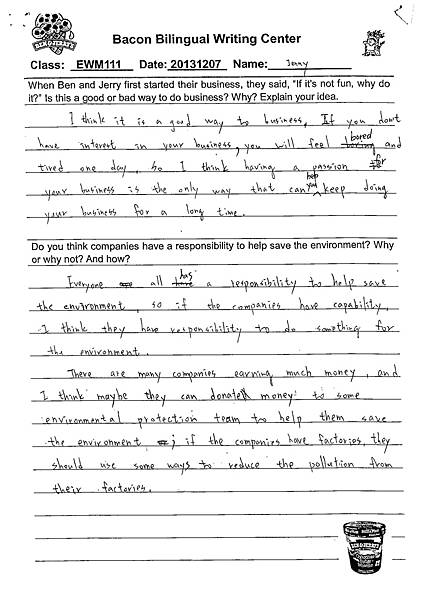 Bacon Bilingual Writing Center
Class: EWM111 Date: 20131207 Name: Jenny
When Ben and Jerry first started their business, they said, "If it's not fun, why do
it?" Is this a good or bad way to do business? Why? Explain your idea.
I think it is a good way to business. If you don't
have interest in your business, you will feel bored and
tired one day, so I think having a passion for
your business is the only way that can help you keep doing
your business for a long time.
Do you think companies have a responsibility to help save the environment? Why
or why not? And how?
Everyone all has a responsibility to help save
the environment, so if the companies have capability,
I think they have responsibility to do something for
the environment.
There are many companies earning much money, and
I think maybe they can donate money to some
environmental protection team to help them save
the environment; if the companies have factories, they
should use some ways to reduce the pollution from
their factories.
BEN & JERRY'S